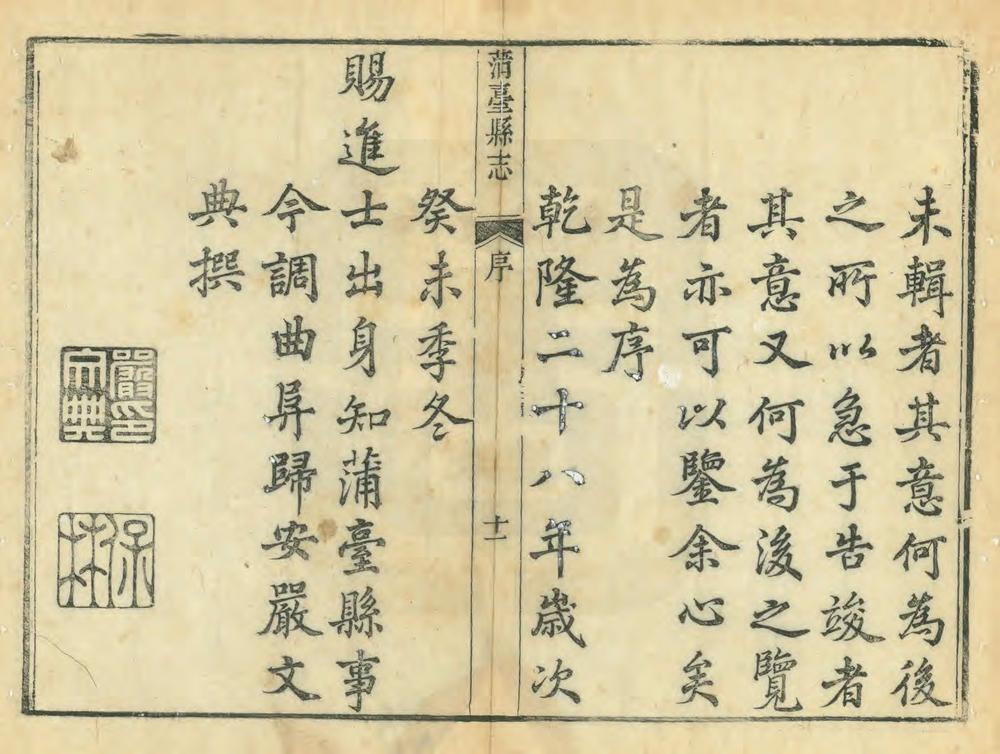 未輯者其意何為後
之所以急于告竣者
其意又何為後之覽
者亦可以鑒余心矣
是為序
乾隆二十八年歲次
蒲臺縣志
序
十一
癸未季冬
賜進士出身知蒲臺縣事
今調曲阜歸安嚴文
典撰
嚴印
文典
保
林